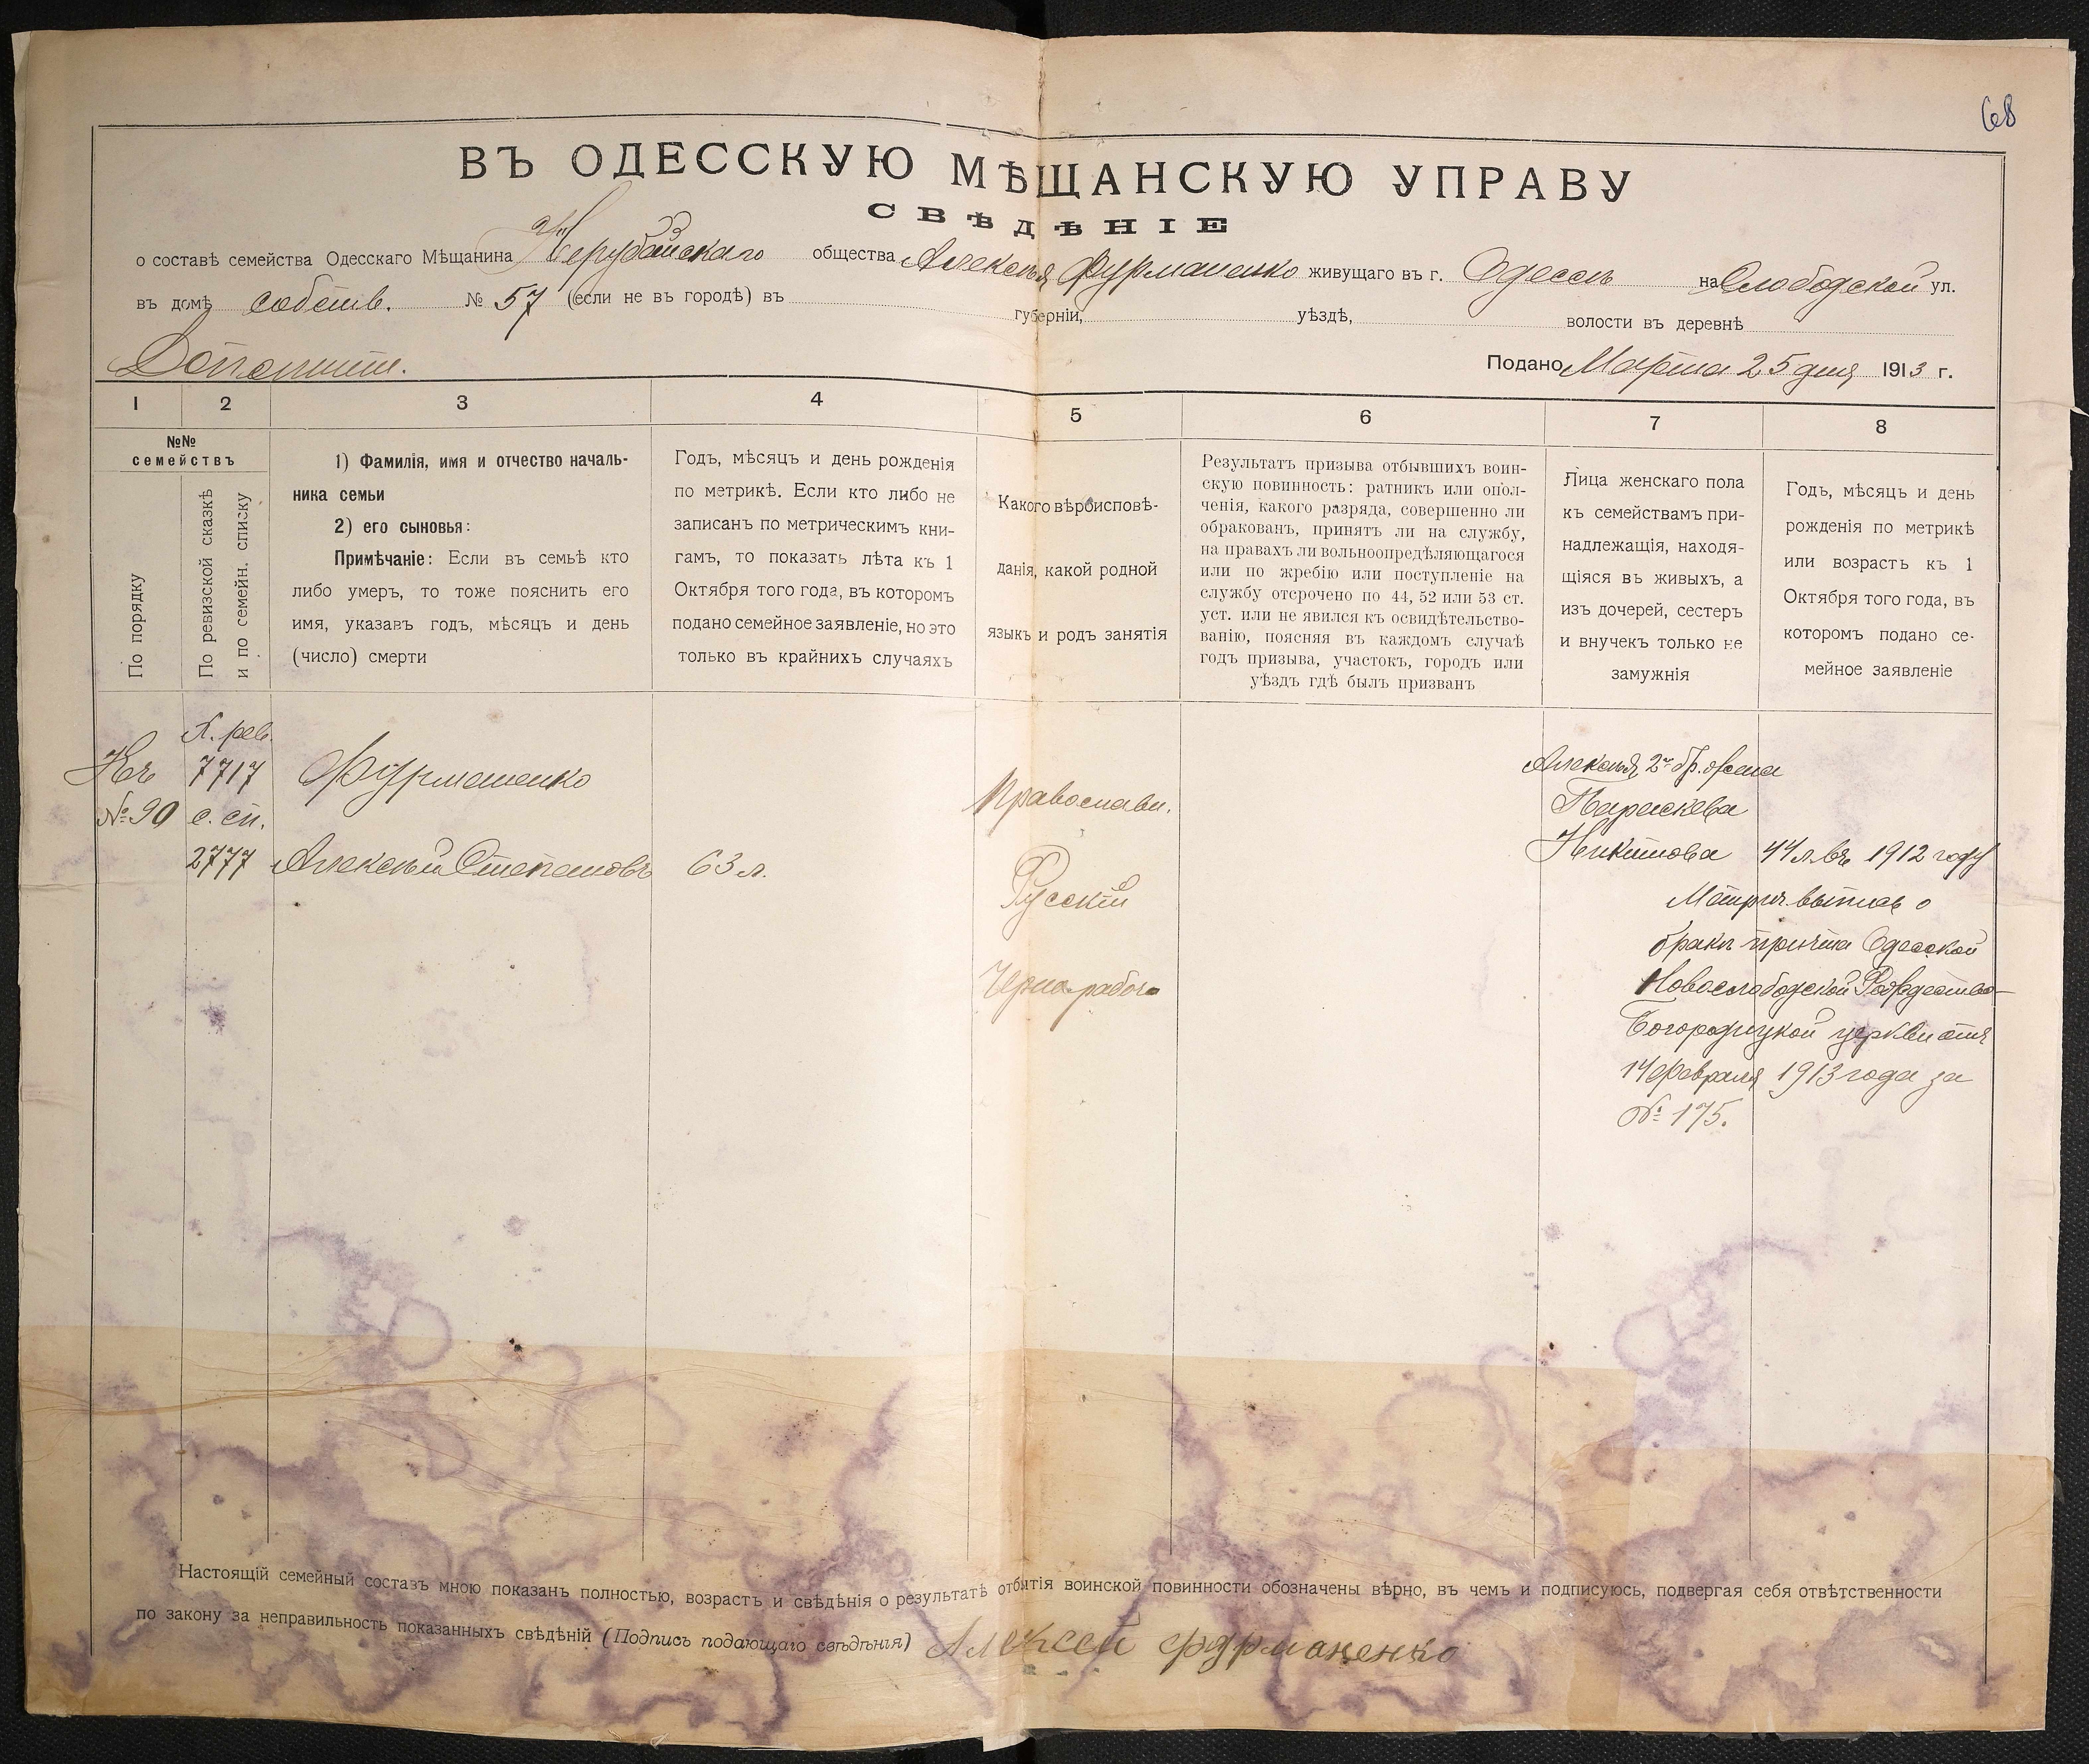 68
ВЪ ОДЕССКУЮ МѢЩАНСКУЮ УПРАВУ
СВѢДѢНІЕ
о составѣ семейства Одесскаго Мѣщанина Нерубайскаго общества Алексѣя Фурманенко живущаго въ г. Одессѣ на Слободской ул.
въ домѣ собств. № 57 (если не въ городѣ) въ губерніи, уѣздѣ, волости въ деревнѣ
Дополнит.
Подано Марта 25 дня 1913 г.
1 2 3 4 5 6 7 8
№№
семействъ
По порядку
По ревизской сказкѣ
и по семейн. списку
1) Фамилія, имя и отчество началь-
ника семьи
2) его сыновья:
Примѣчаніе: Если въ семьѣ кто
либо умеръ, то тоже пояснить его
имя, указавъ годъ, мѣсяцъ и день
(число) смерти
Годъ, мѣсяцъ и день рожденія
по метрикѣ. Если кто либо не
записанъ по метрическимъ кни-
гамъ, то показать лѣта къ 1
Октября того года, въ которомъ
подано семейное заявленіе, но это
только въ крайнихъ случаяхъ
Какого вѣроисповѣ-
данія, какой родной
языкъ и родъ занятія
Результатъ призыва отбывшихъ воин-
скую повинность: ратникъ или опол-
ченія, какого разряда, совершенно ли
обракованъ, принятъ ли на службу,
на правахъ ли вольноопредѣляющагося
или по жребію или поступленіе на
службу отсрочено по 44, 52 или 53 ст.
уст. или не явился къ освидѣтельство-
ванію, поясняя въ каждомъ случаѣ
годъ призыва, участокъ, городъ или
уѣздъ гдѣ былъ призванъ
Лица женскаго пола
къ семействамъ при-
надлежащія, находя-
щіяся въ живыхъ, а
изъ дочерей, сестеръ
и внучекъ только не
замужнія
Годъ, мѣсяцъ и день
рожденія по метрикѣ
или возрастъ къ 1
Октября того года, въ
которомъ подано се-
мейное заявленіе
Къ
№ 90
X. рев.
7717
с. сп.
2777
Фурманенко
Алексѣй Степановъ
63 л.
Православн.
Русскій
Чернорабоч.
Алексѣя 2го бр. жена
Параскева
Никитова 44 л въ 1912 году
Метрич выпись о
бракѣ причта Одесской
Новослободской Рождество-
Богородицкой церкви отъ
14 февраля 1913 года за
№ 175.
Настоящій семейный составъ мною показанъ полностью, возрастъ и свѣдѣнія о результатѣ отбытія воинской повинности обозначены вѣрно, въ чемъ и подписуюсь, подвергая себя отвѣтственности
по закону за неправильность показанныхъ свѣдѣній (Подпись подающаго свѣдѣнія) Алексей фурманенко